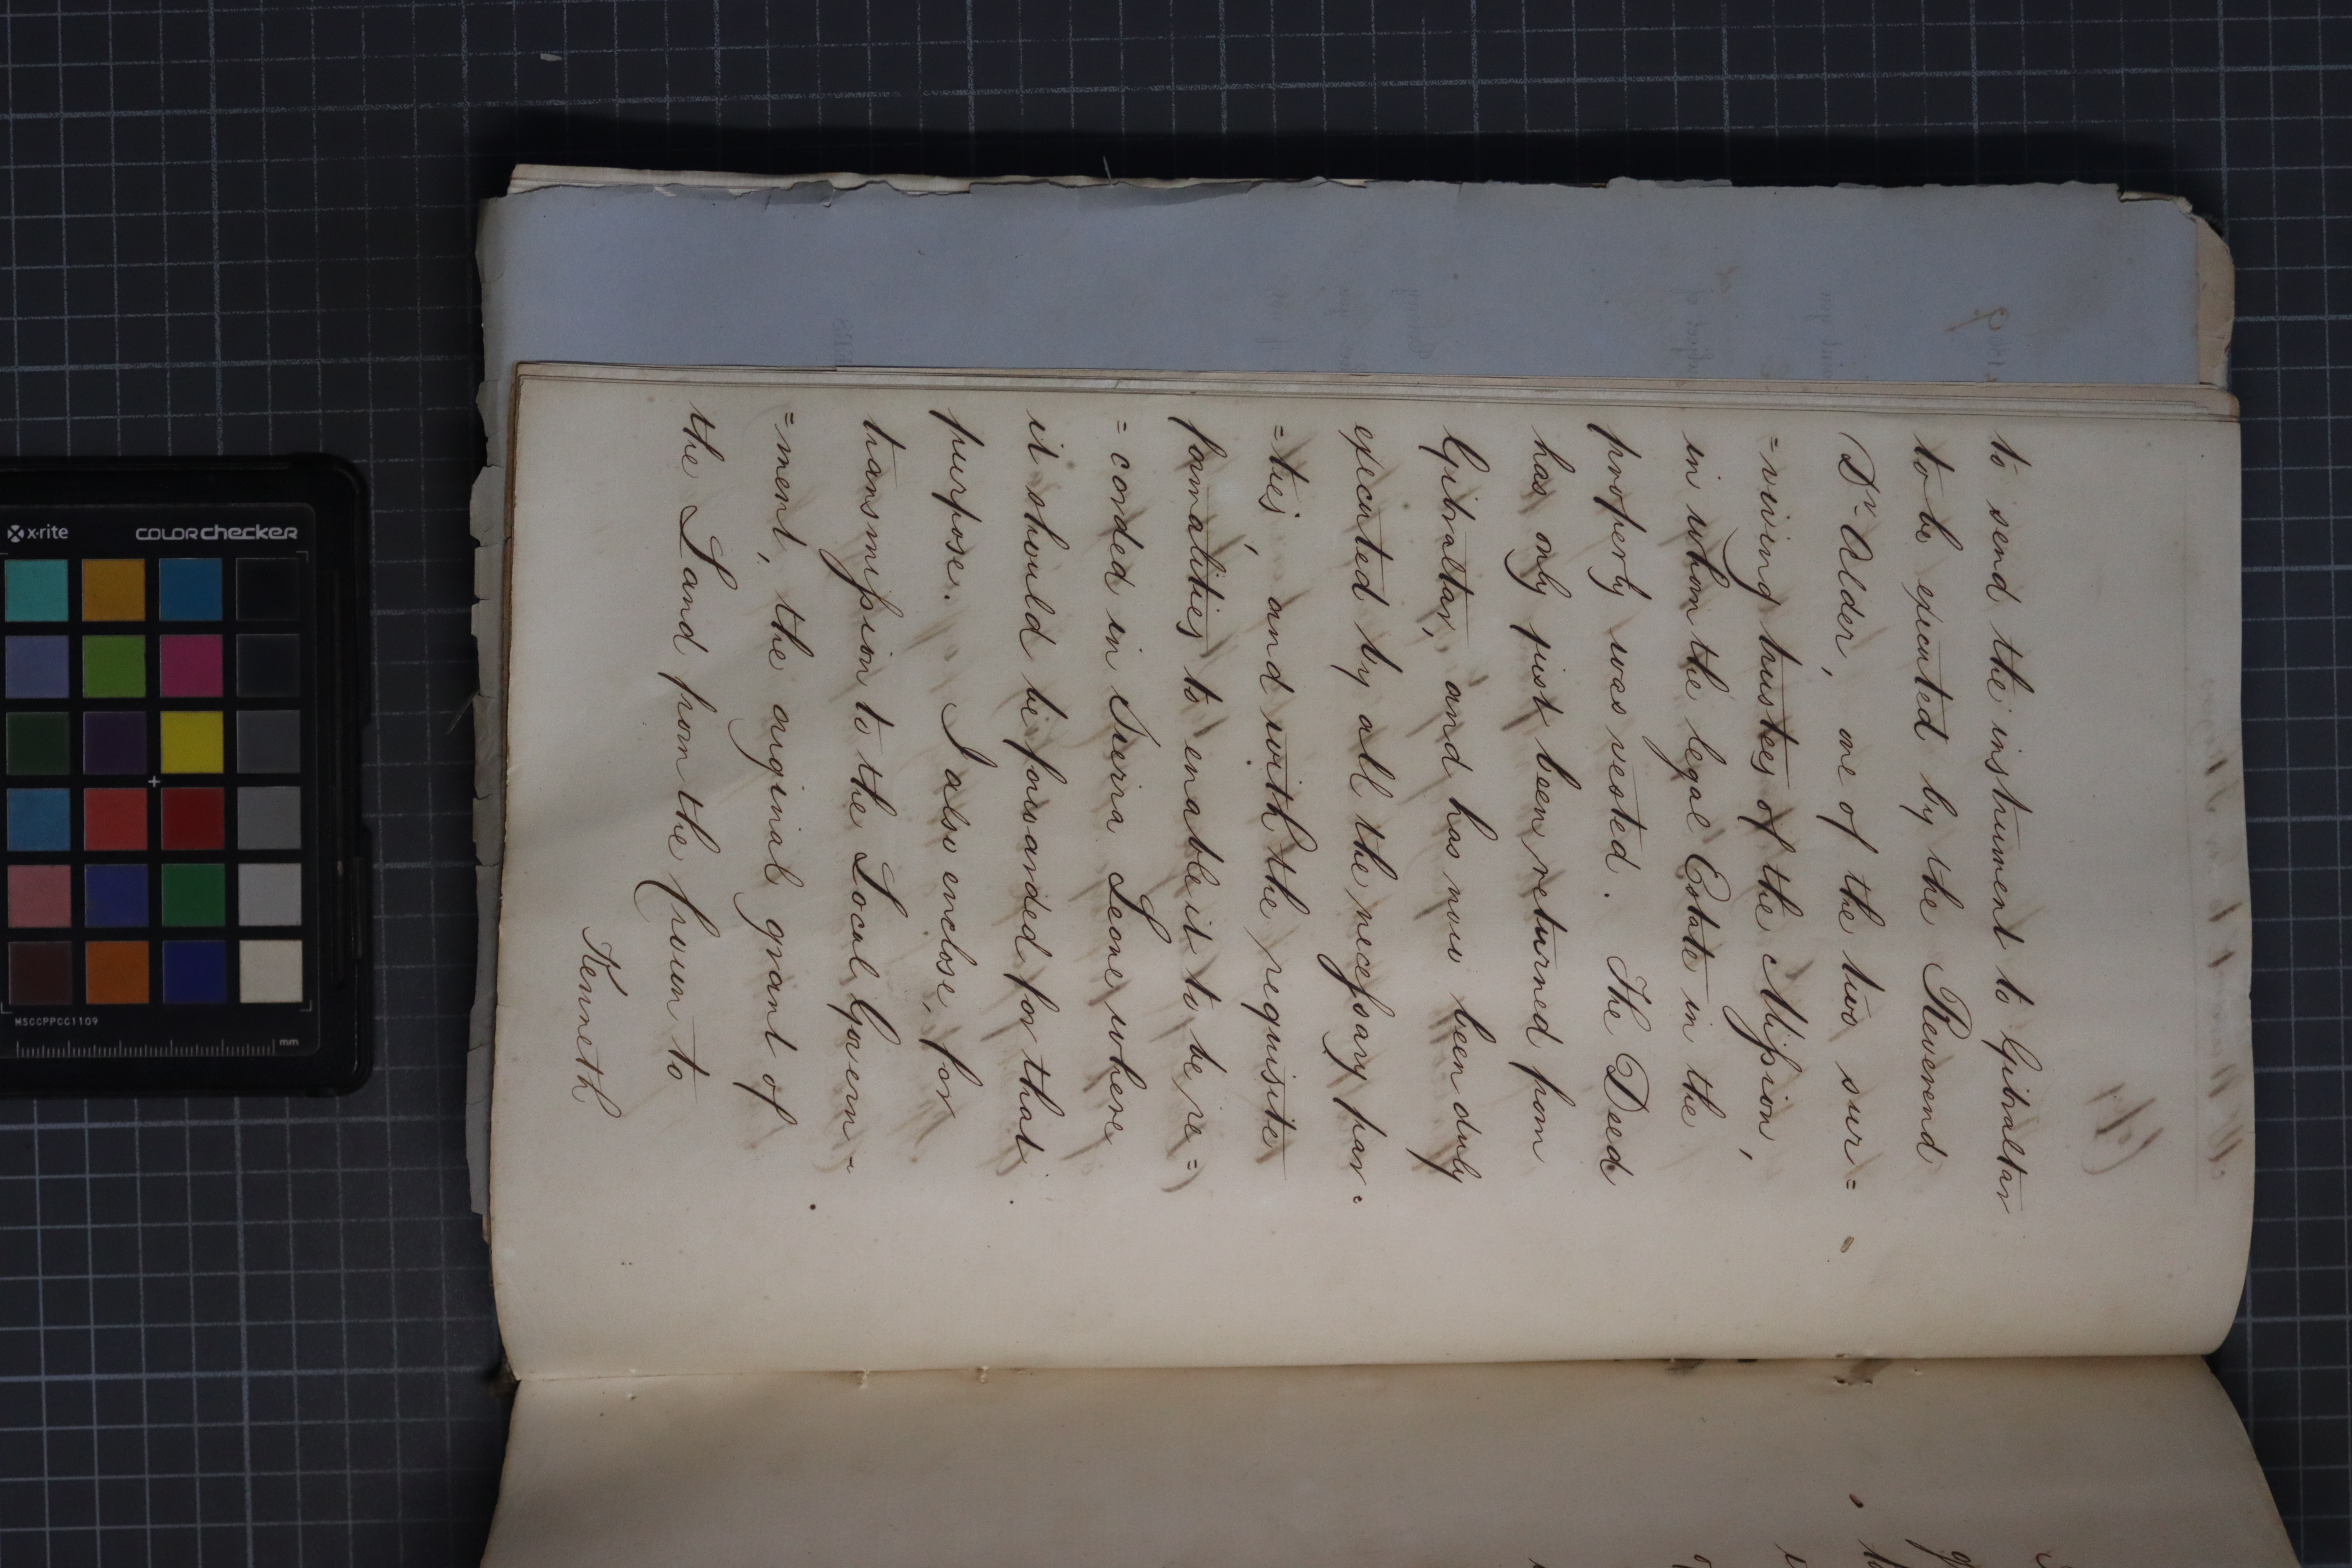 to send the instrument to Gibraltar
to be executed by the Reverend
Dr. Alder, one of the two sur=
=viving trustees of the Mission,
in whom the legal Estate in the
property was vested. The Deed
has only just been returned from
Gibraltar, and has now been duly
executed by all the necessary par=
=ties, and with the requisite
formalities to enable it to be re=
=corded in Sierra Leone where
it should be forwarded for that
purpose. I also enclose, for
transmission to the Local Govern=
=ment, the original grant of
the Land from the Crown to
Kenneth
x·rite
COLORchecker
MSCCPPCC1109
mm